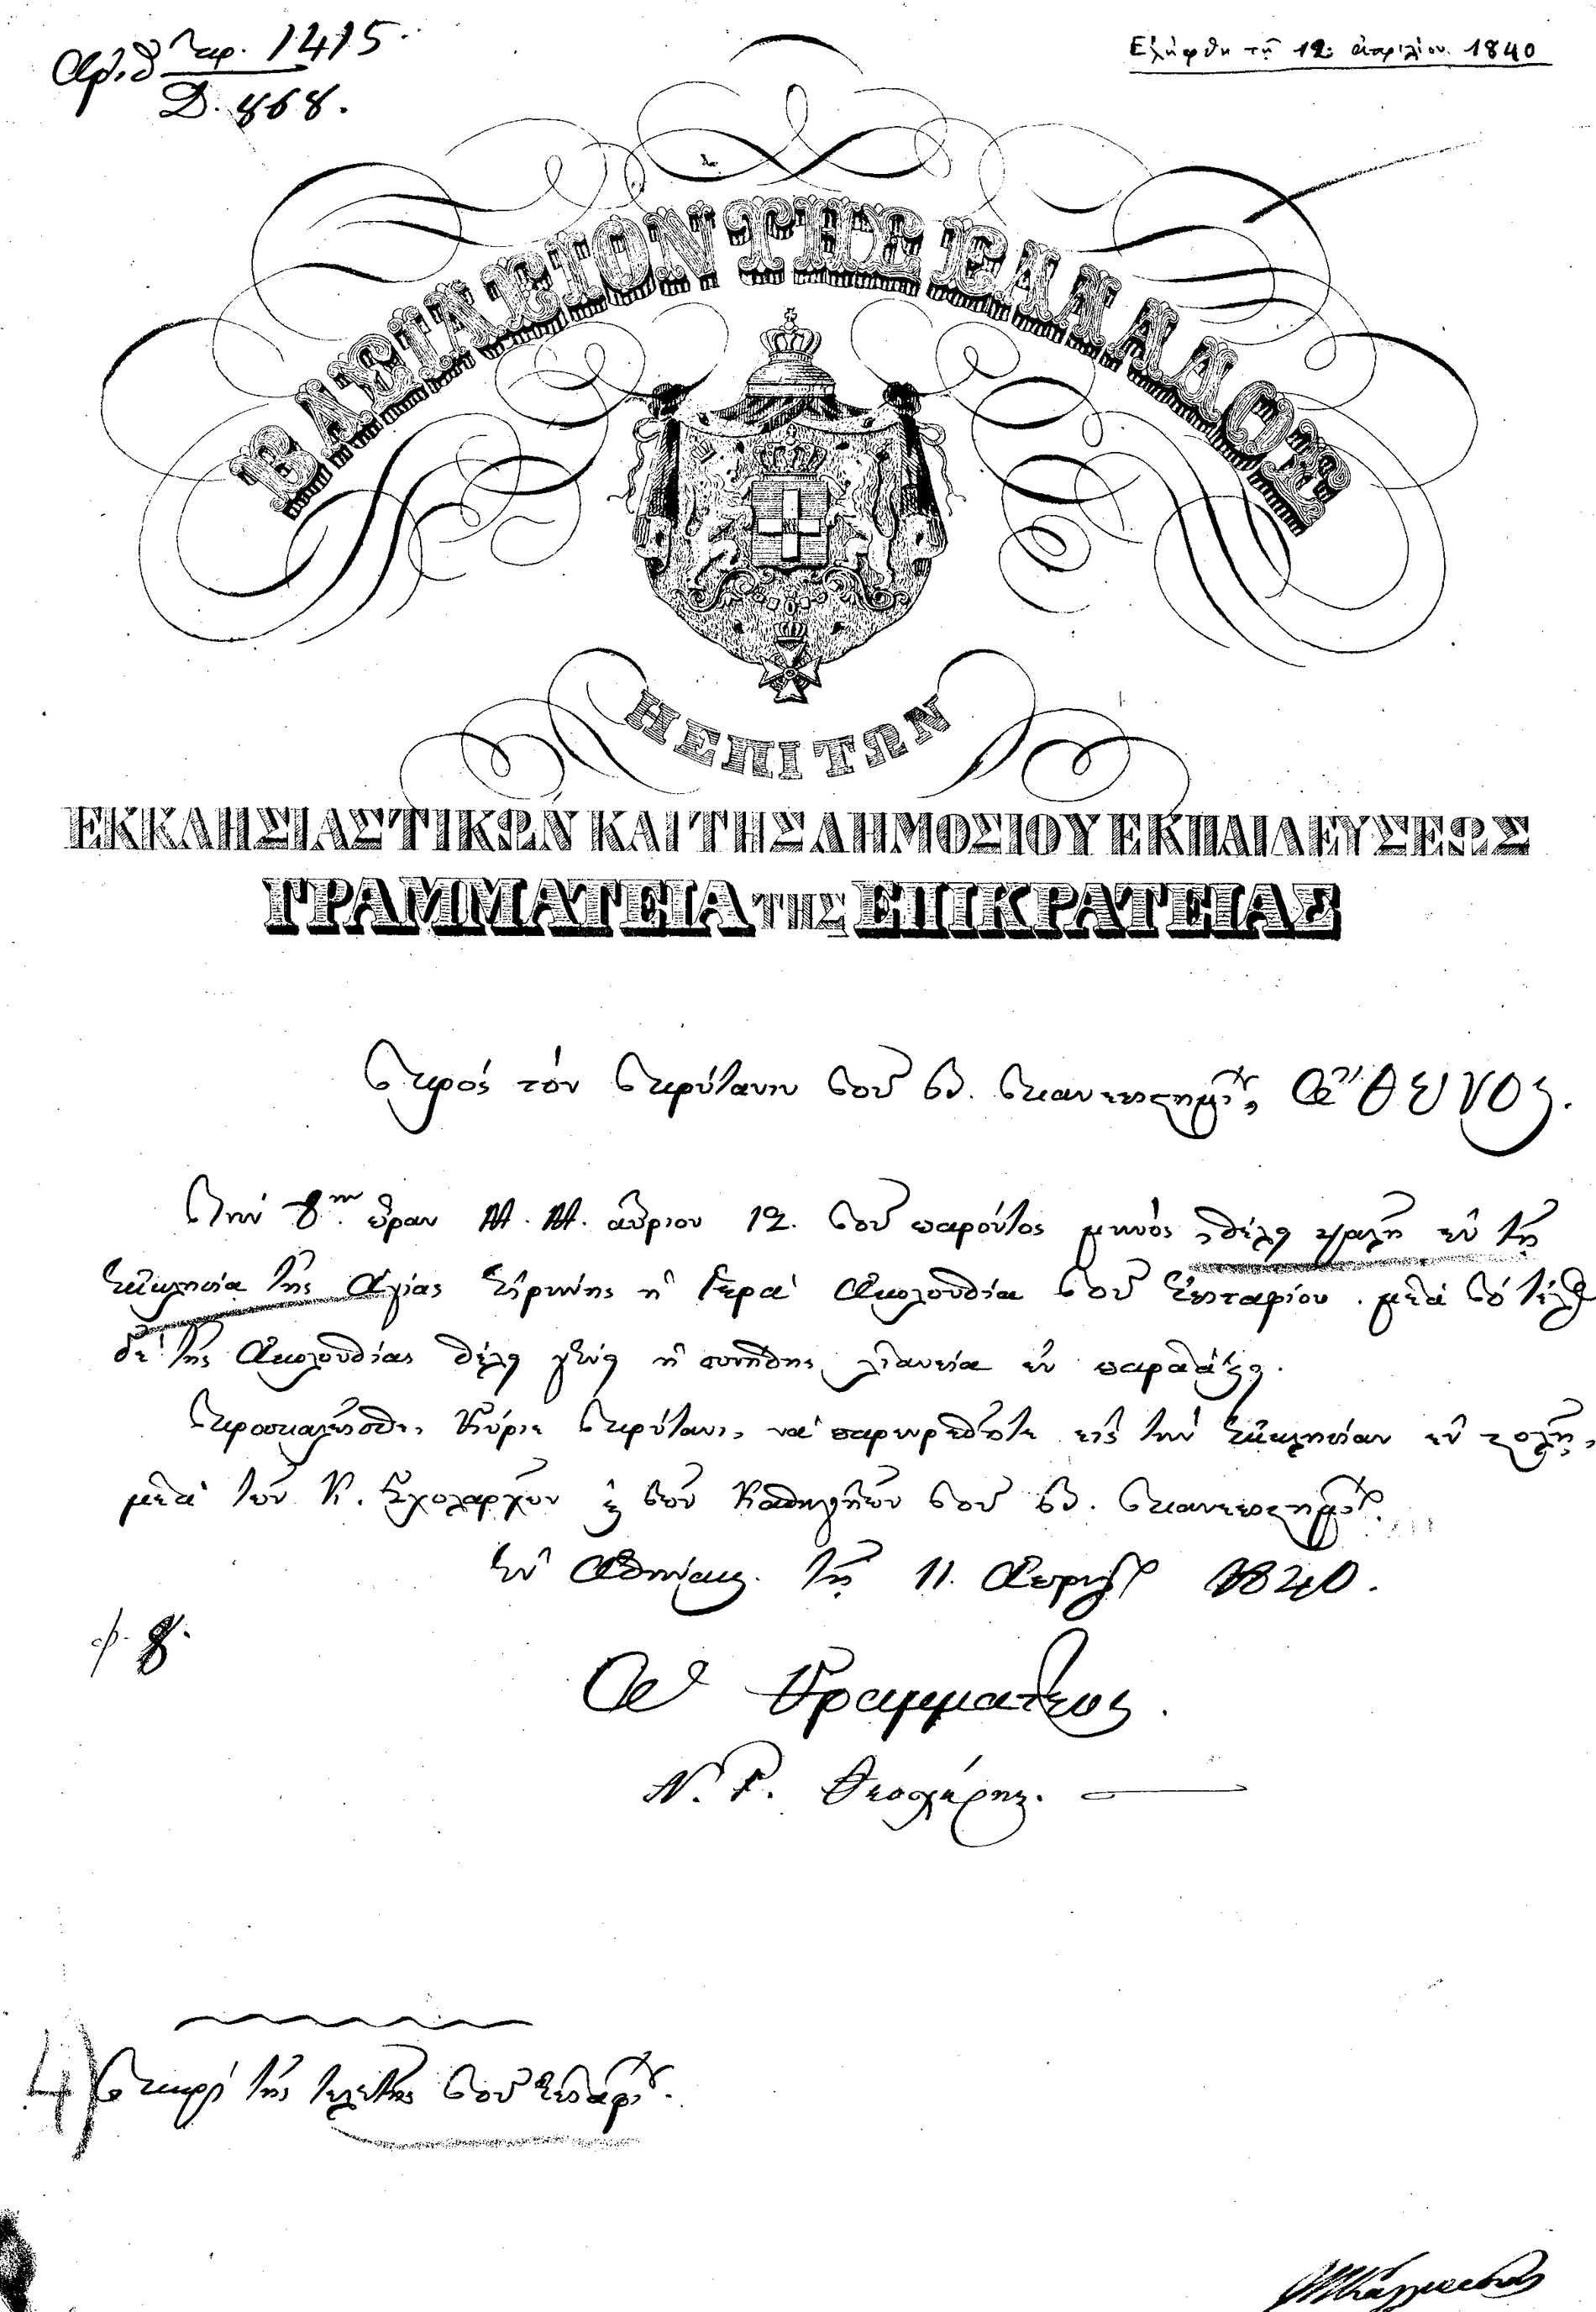 Ἀριθ Πρ. 1415.
Δ. 868.
Ἐλήφθη τῇ 12 ἀπριλίου 1840
ΒΑΣΙΛΕΙΟΝ ΤΗΣ ΕΛΛΑΔΟΣ
Η ΕΠΙ ΤΩΝ
ΕΚΚΛΗΣΙΑΣΤΙΚΩΝ ΚΑΙ ΤΗΣ ΔΗΜΟΣΙΟΥ ΕΚΠΑΙΔΕΥΣΕΩΣ
ΓΡΑΜΜΑΤΕΙΑ ΤΗΣ ΕΠΙΚΡΑΤΕΙΑΣ
Πρός τόν Πρύτανιν τοῦ Ὀ. Πανεπιστημίου, Ὄθωνος.
Τήν 8ην ὥραν Μ. Μ. αὔριον 12. τοῦ παρόντος μηνός, θέλει ψαλῆ ἐν τῇ
Ἐκκλησίᾳ τῆς Ἁγίας Εἰρήνης ἡ Ἱερά Ἀκολουθία τοῦ Ἐπιταφίου. μετά τό τέλος
δέ τῆς Ἀκολουθίας θέλει γένει ἡ συνήθης λιτανεία ἐν παρατάξει.
Προσκαλεῖσθε, Κύριε Πρύτανι, νά παρευρεθῆτε εἰς τήν Ἐκκλησίαν ἐν στολῇ,
μετά τῶν Κ. Σχολαρχῶν καί τῶν Καθηγητῶν τοῦ Ὀ. Πανεπιστημίου.
Ἐν Ἀθήναις. τῇ 11. Ἀπριλίου 1840.
φ. 8.
Ὁ Γραμματεύς.
Ν. Γ. Θεοχάρης.
4) Περί τῆς τελετῆς τοῦ Ἐπιταφίου.